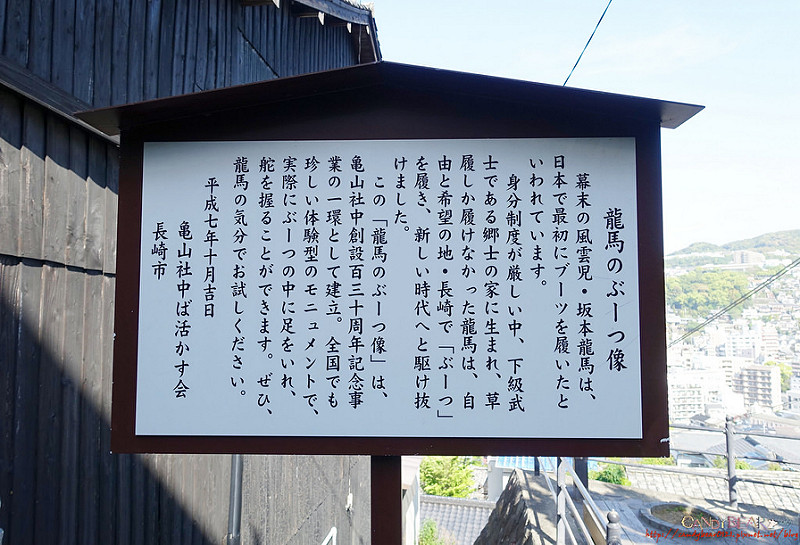 龍馬のぶーつ像
幕末の風雲児・坂本龍馬は、
日本で最初にブーツを履いたと
いわれています。
身分制度が厳しい中、下級武
士である郷士の家に生まれ、草
履しか履けなかった龍馬は、自
由と希望の地・長崎で「ぶーつ」
を履き、新しい時代へと駆け抜
けました。
この「龍馬のぶーつ像」は、
亀山社中創設百三十周年記念事
業の一環として建立。全国でも
珍しい体験型のモニュメントで、
実際にぶーつの中に足をいれ、
舵を握ることができます。ぜひ、
龍馬の気分でお試しください。
平成七年十月吉日
亀山社中ば活かす会
長崎市